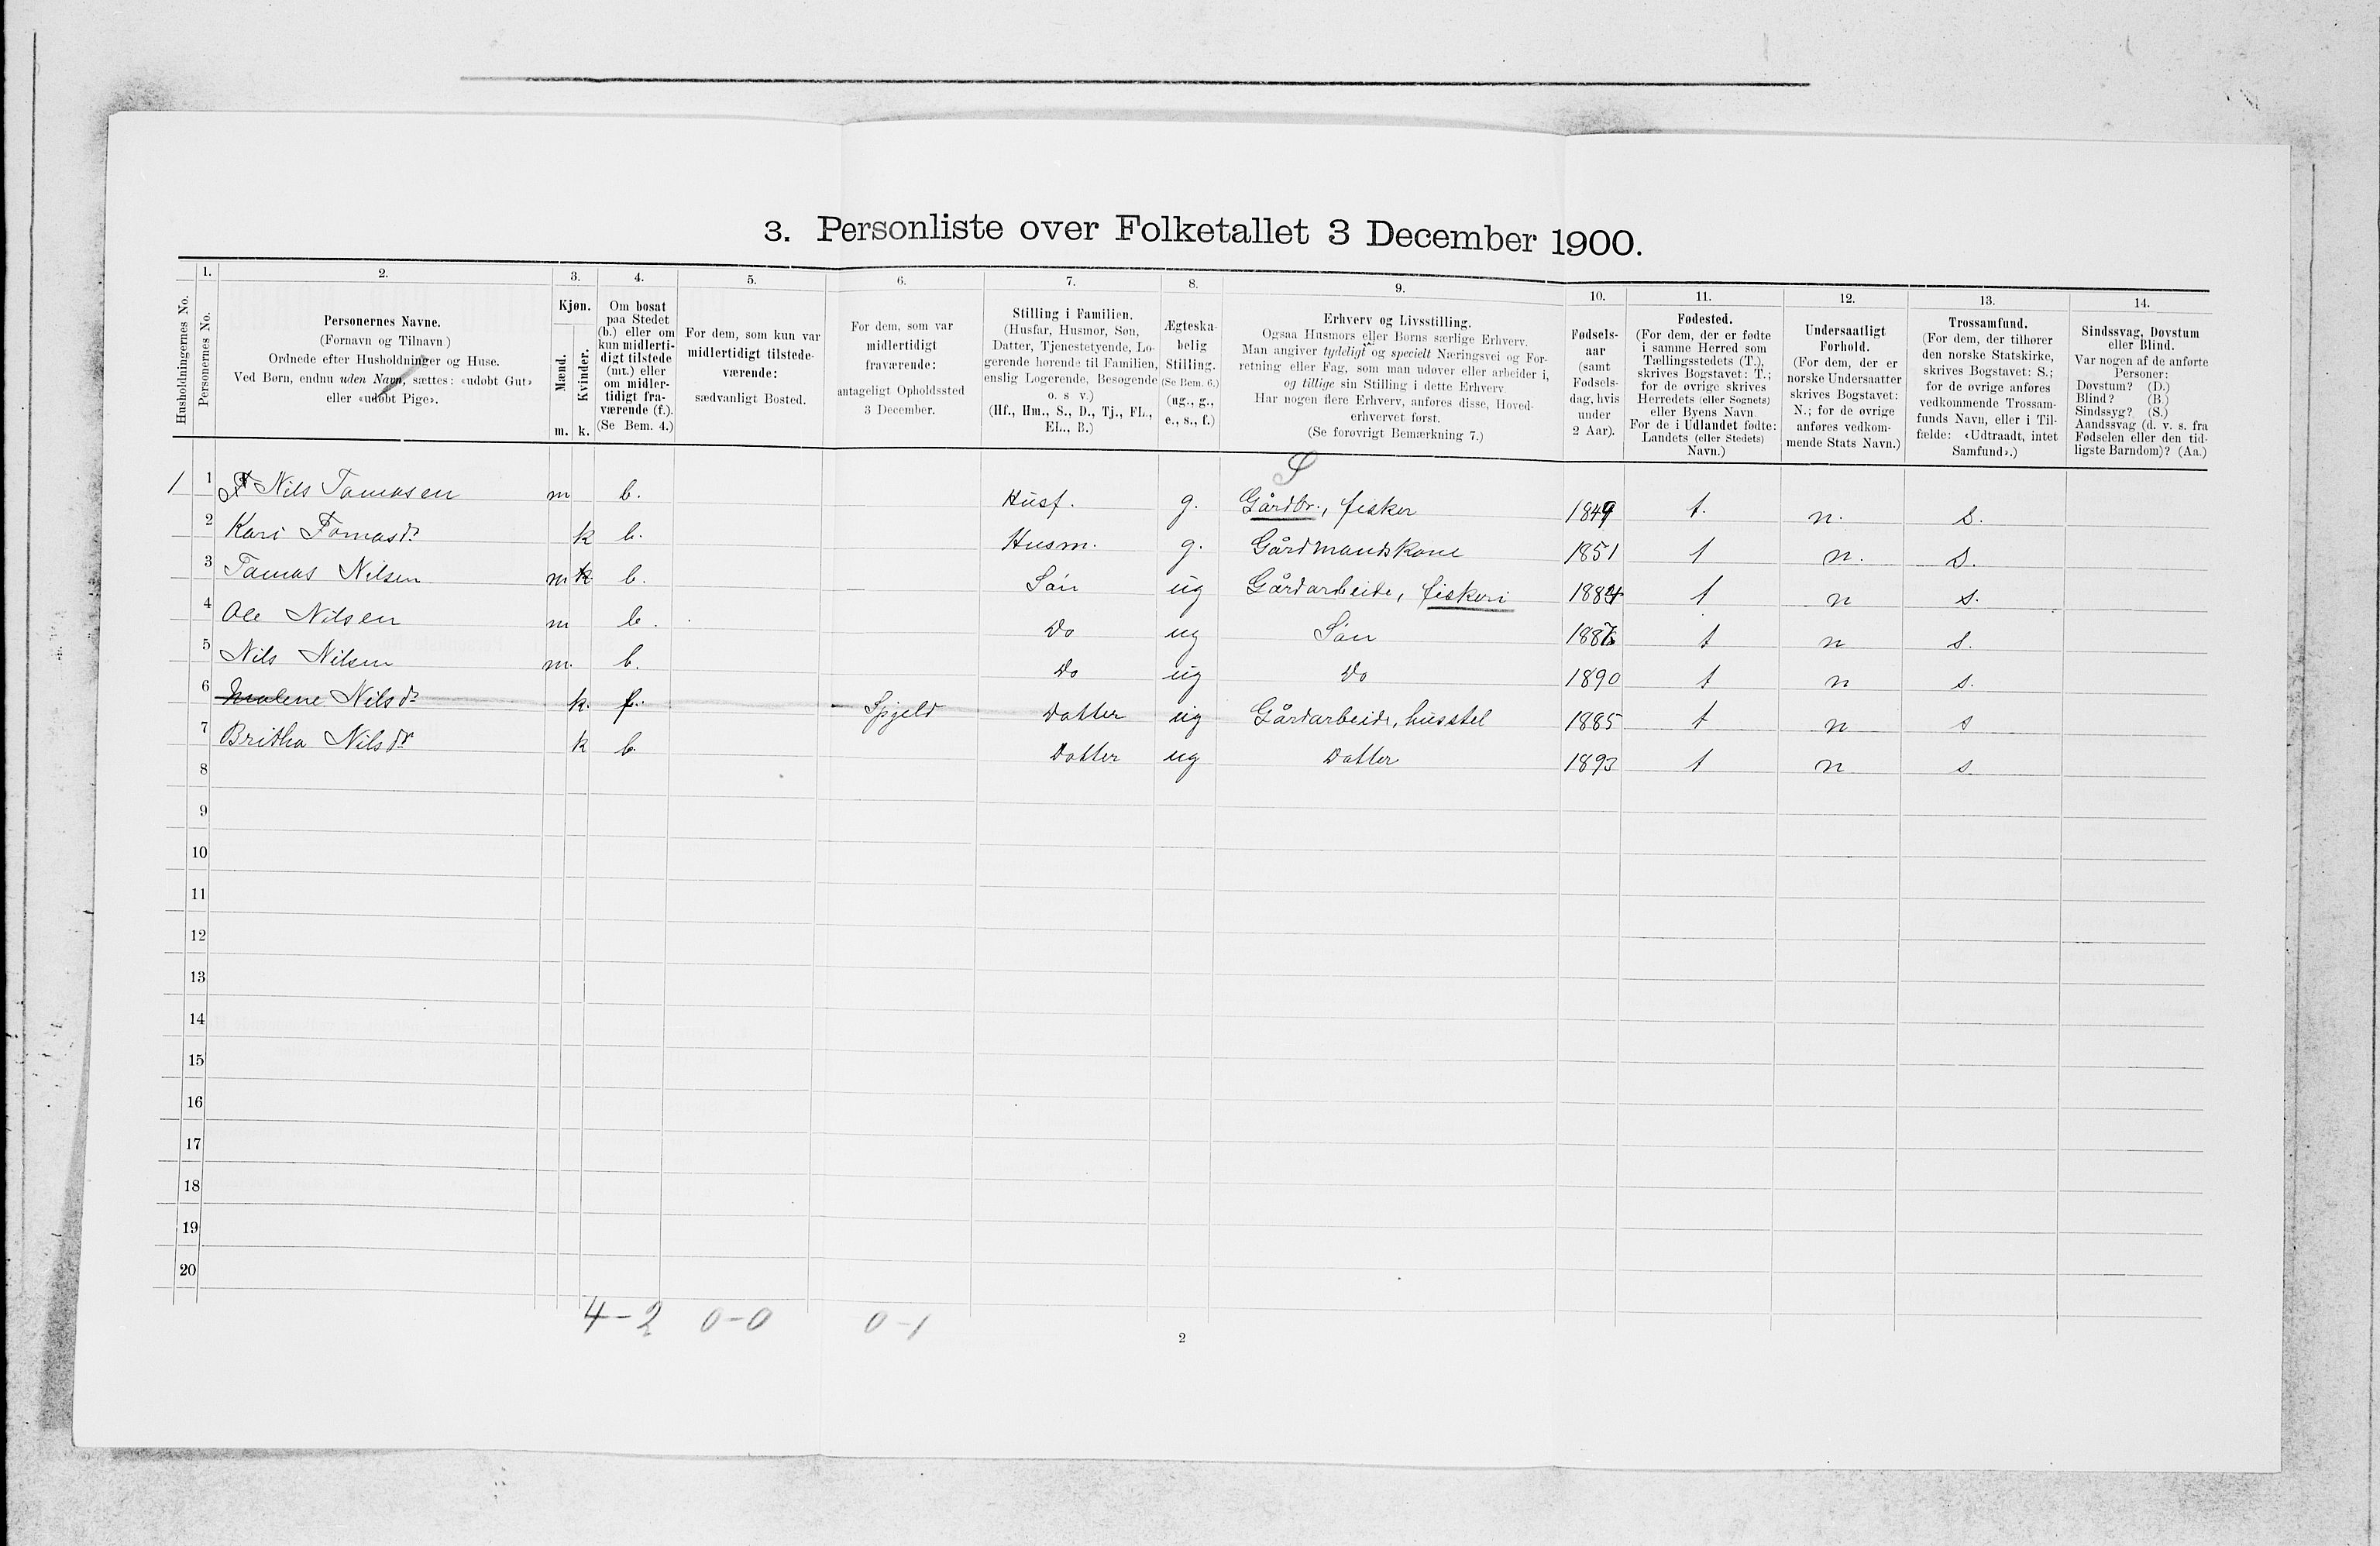 3. Personliste over Folketallet 3 December 1900.
Husholdningernes No.
1.
Personernes No.
2.
Personernes Navne.
(Fornavn og Tilnavn)
Ordnede efter Husholdninger og Huse.
Ved Børn, endnu uden Navn, sættes: «udøbt Gut»
eller «udøbt Pige».
3.
Kjøn.
Mænd.
Kvinder.
m. k.
4.
Om bosat
paa Stedet
(b.) eller om
kun midlerti-
digt tilstede
(mt.) eller
om midler-
tidigt fra-
værende (f.).
(Se Bem. 4.)
5.
For dem, som kun var
midlertidigt tilstede-
værende:
sædvanligt Bosted.
6.
For dem, som var
midlertidigt
fraværende:
antageligt Opholdssted
3 December.
7.
Stilling i Familien.
(Husfar, Husmor, Søn,
Datter, Tjenestetyende, Lo-
gerende hørende til Familien,
enslig Logerende, Besøgende
o. s. v.)
(Hf., Hm., S., D., Tj., FL.,
EL., B.)
8.
Ægteska-
belig
Stilling.
(Se Bem. 6.)
(ug., g.,
e., s., f.)
9.
Erhverv og Livsstilling.
Ogsaa Husmors eller Børns særlige Erhverv.
Man angiver tydeligt og specielt Næringsvei og For-
retning eller Fag, som man udøver eller arbeider i,
og tillige sin Stilling i dette Erhverv.
Har nogen flere Erhverv, anføres disse, Hoved-
erhvervet først.
(Se forøvrigt Bemærkning 7.)
10.
Fødsels-
aar
(samt
Fødsels-
dag, hvis
under
2 Aar).
11.
Fødested.
(For dem, der er fødte
i samme Herred som
Tællingsstedets (T.),
skrives Bogstavet: T.;
for de øvrige skrives
Herredets (eller Sognets)
eller Byens Navn.
For de i Udlandet fødte:
Landets (eller Stedets)
Navn.)
12.
Undersaatligt
Forhold.
(For dem, der er
norske Undersaatter
skrives Bogstavet:
N.; for de øvrige
anføres vedkom-
mende Stats Navn.)
13.
Trossamfund.
(For dem, der tilhører
den norske Statskirke,
skrives Bogstavet: S.;
for de øvrige anføres
vedkommende Trossam-
funds Navn, eller i Til-
fælde: «Udtraadt, intet
Samfund».)
14.
Sindssvag, Døvstum
eller Blind.
Var nogen af de anførte
Personer:
Døvstum? (D.)
Blind? (B.)
Sindssyg? (S.)
Aandssvag (d. v. s. fra
Fødselen eller den tid-
ligste Barndom)? (Aa.)
S
1 1 Nils Tomasen m b. Husf. g. Gårdbr., fisker 1849 t. n. s.
2 Kari Tomasdr k b. Husm. g. Gårdmandskone 1851 t n. s.
3 Tomas Nilsen m k b. Søn ug Gårdarbeide, fiskeri 1884 t n s.
4 Ole Nilsen m b. Do ug Søn 1887 t n s.
5 Nils Nilsen m. b. Do ug Do 1890 t n s.
6 Malene Nilsdr k. f. Spjeld Datter ug Gårdarbeide, husstel 1885 t n s
7 Britha Nilsdr k b. Datter ug Datter 1893 t n s.
8
9
10
11
12
13
14
15
16
17
18
19
20
4-2 0-0 0-1
2